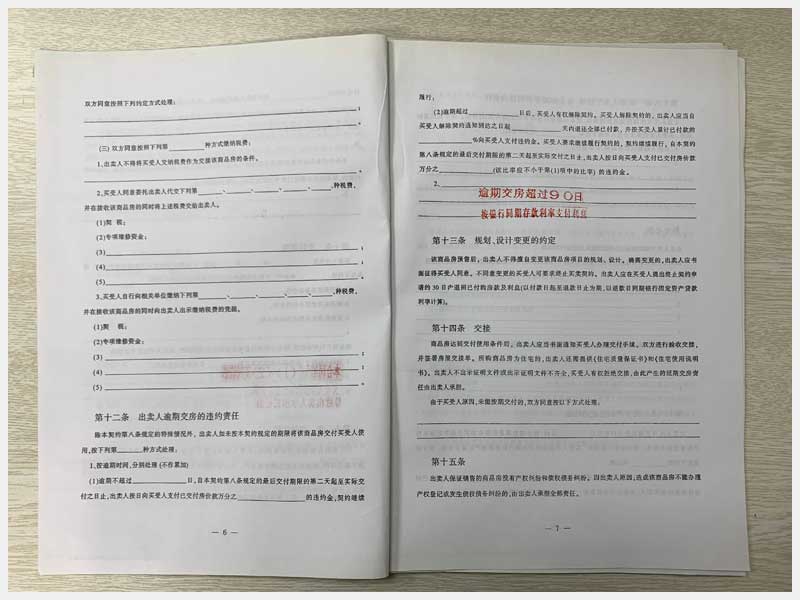 双方同意按照下列约定方式处理：
；
。
(三) 双方同意按照下列第 种方式缴纳税费：
1、出卖人不得将买受人交纳税费作为交接该商品房的条件。
。
2、买受人同意委托出卖人代交下列第 、 、 、 、 、 种税费，
并在接收该商品房的同时将上述税费交给出卖人。
(1)契 税；
(2)专项维修资金；
(3) ；
(4) ；
(5) 。
3、买受人自行向相关单位缴纳下列第 、 、 、 、 、 种税费，
并在接收该商品房的同时向出卖人出示缴纳税费的凭据。
(1)契 税；
(2)专项维修资金；
(3) ；
(4) ；
(5) 。
第十二条 出卖人逾期交房的违约责任
除本契约第八条规定的特殊情况外，出卖人如未按本契约规定的期限将该商品房交付买受人使
用，按下列第 种方式处理：
1、按逾期时间，分别处理 (不作累加)
(1)逾期不超过 日，自本契约第八条规定的最后交付期限的第二天起至实际交
付之日止，出卖人按日向买受人支付已交付房价款万分之 的违约金，契约继续
— 6 —
履行；
(2)逾期超过 日后，买受人有权解除契约。买受人解除契约的，出卖人应当自
买受人解除契约通知到达之日起 天内退还全部已付款，并按买受人累计已付款的
%向买受人支付违约金。买受人要求继续履行契约的，契约继续履行，自本契约
第八条规定的最后交付期限的第二天起至实际交付之日止，出卖人按日向买受人支付已交付房价款
万分之 (该比率应不小于第(1)项中的比率) 的违约金。
2、
逾期交房超过90日
按银行同期存款利率支付利息
第十三条 规划、设计变更的约定
该商品房预售后，出卖人不得擅自变更该商品房项目的规划、设计。确需变更的，出卖人应书
面征得买受人同意。不同意变更的买受人可要求终止买卖契约。出卖人应在买受人提出终止契约申
请的30日内退照已付购房款及利息(以付款日起至退款日止为期，以退款日同期银行固定资产贷款
利率计算)。
第十四条 交接
商品房达到交付使用条件后，出卖人应当书面通知买受人办理交付手续。双方进行验收交接，
并签署房屋交接单。所购商品房为住宅的，出卖人还需提供《住宅质量保证书》和《住宅使用说明
书》。出卖人不出示证明文件或出示证明文件不齐全，买受人有权拒绝交接，由此产生的延期交房责
任由出卖人承担。
由于买受人原因，未能按期交付的，双方同意按以下方式处理。
第十五条
出卖人保证销售的商品房没有产权纠纷和债权债务纠纷。因出卖人原因，造成该商品房不能办理
产权登记或发生债权债务纠纷的，由出卖人承担全部责任。
— 7 —